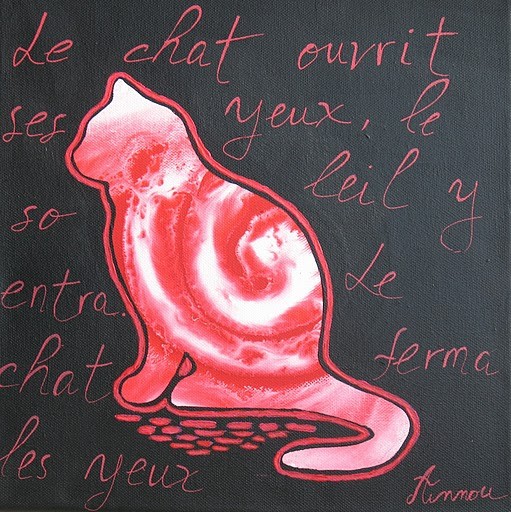 Le chat ouvrit
ses yeux, le
so leil y
entra. Le
chat ferma
les yeux
Aïnnou